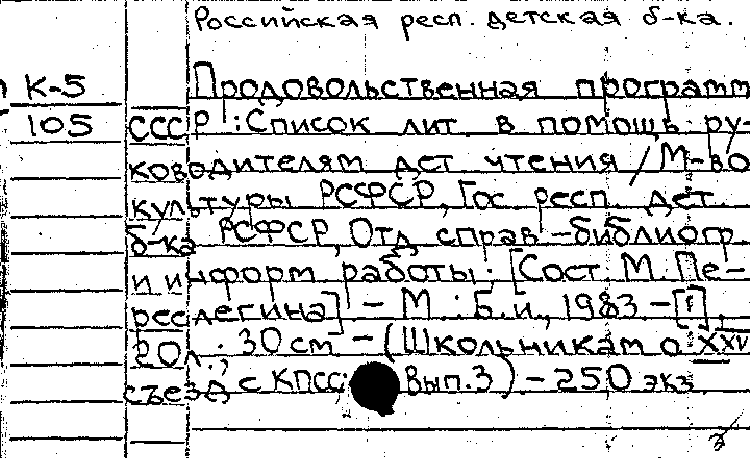 Российская респ. детская б-ка.
К-5 Продовольственная программ
105 СССР : Список лит. в помощь ру-
ководителям дет чтения / М-во
культуры РСФСР, Гос респ. дет.
б-ка РСФСР, Отд справ-библиогр
и информ работы; [Сост. М. Пе-
ределегина] - М. : Б.и., 1983 - [1],
20л.; 30 см - (Школьникам о XXV
съезде КПСС; Вып.3) - 250 экз